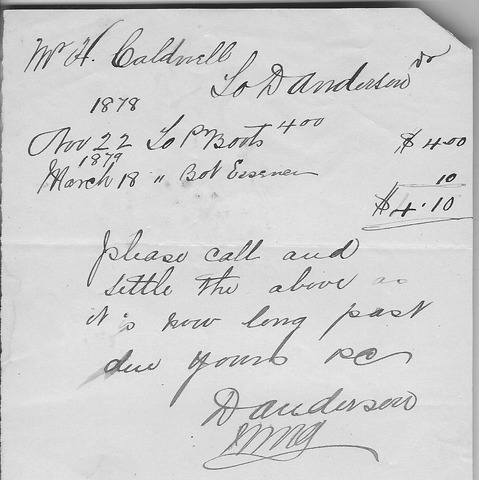 Mr H. Caldwell
To D Anderson Dr
1878
Nov 22 To Pr Boots 4 00 $ 4.00
1879
March 18 " Bot Essence 10
$ 4.10
please call and
settle the above as
it is now long past
due yours &c
D Anderson